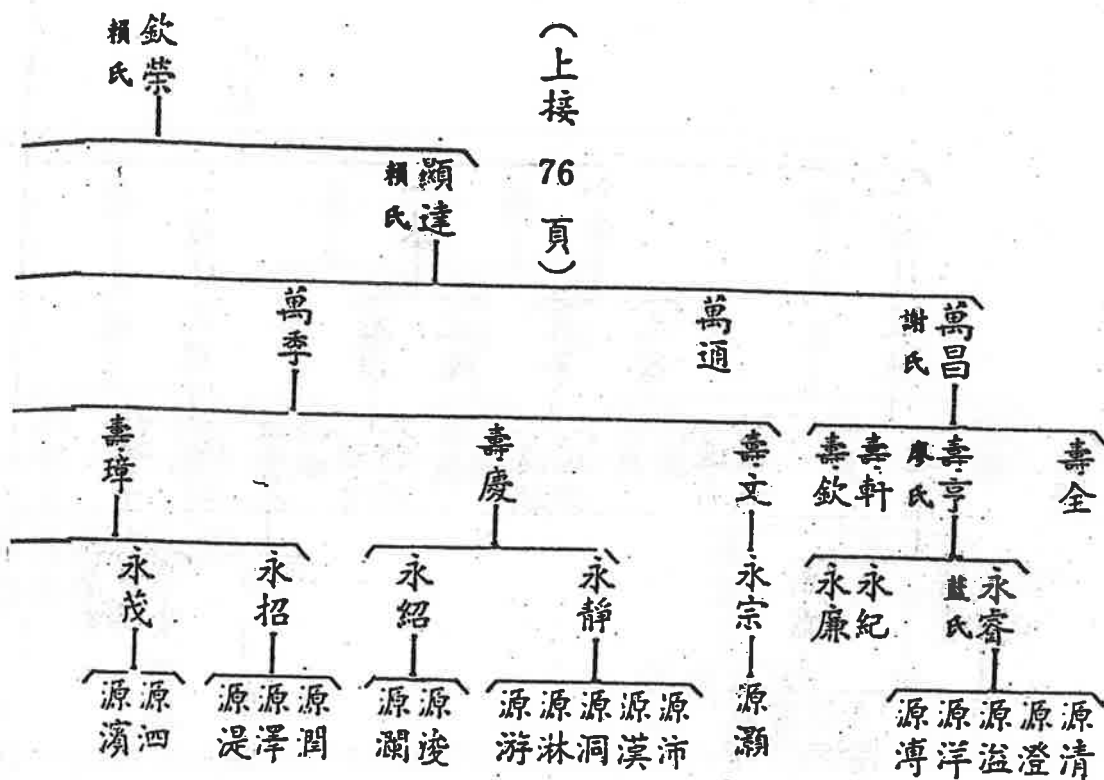 （上接 76 頁）
欽榮
賴氏
顯達
賴氏
萬昌
謝氏
萬通
萬季
壽全
壽亨
廖氏
壽軒
壽欽
壽文
壽慶
壽璋
永睿
藍氏
永紀
永廉
永宗
永靜
永紹
永招
永茂
源清
源澄
源溢
源洋
源漙
源灝
源沛
源漢
源洞
源淋
源游
源浚
源瀾
源潤
源澤
源湜
源泗
源濱